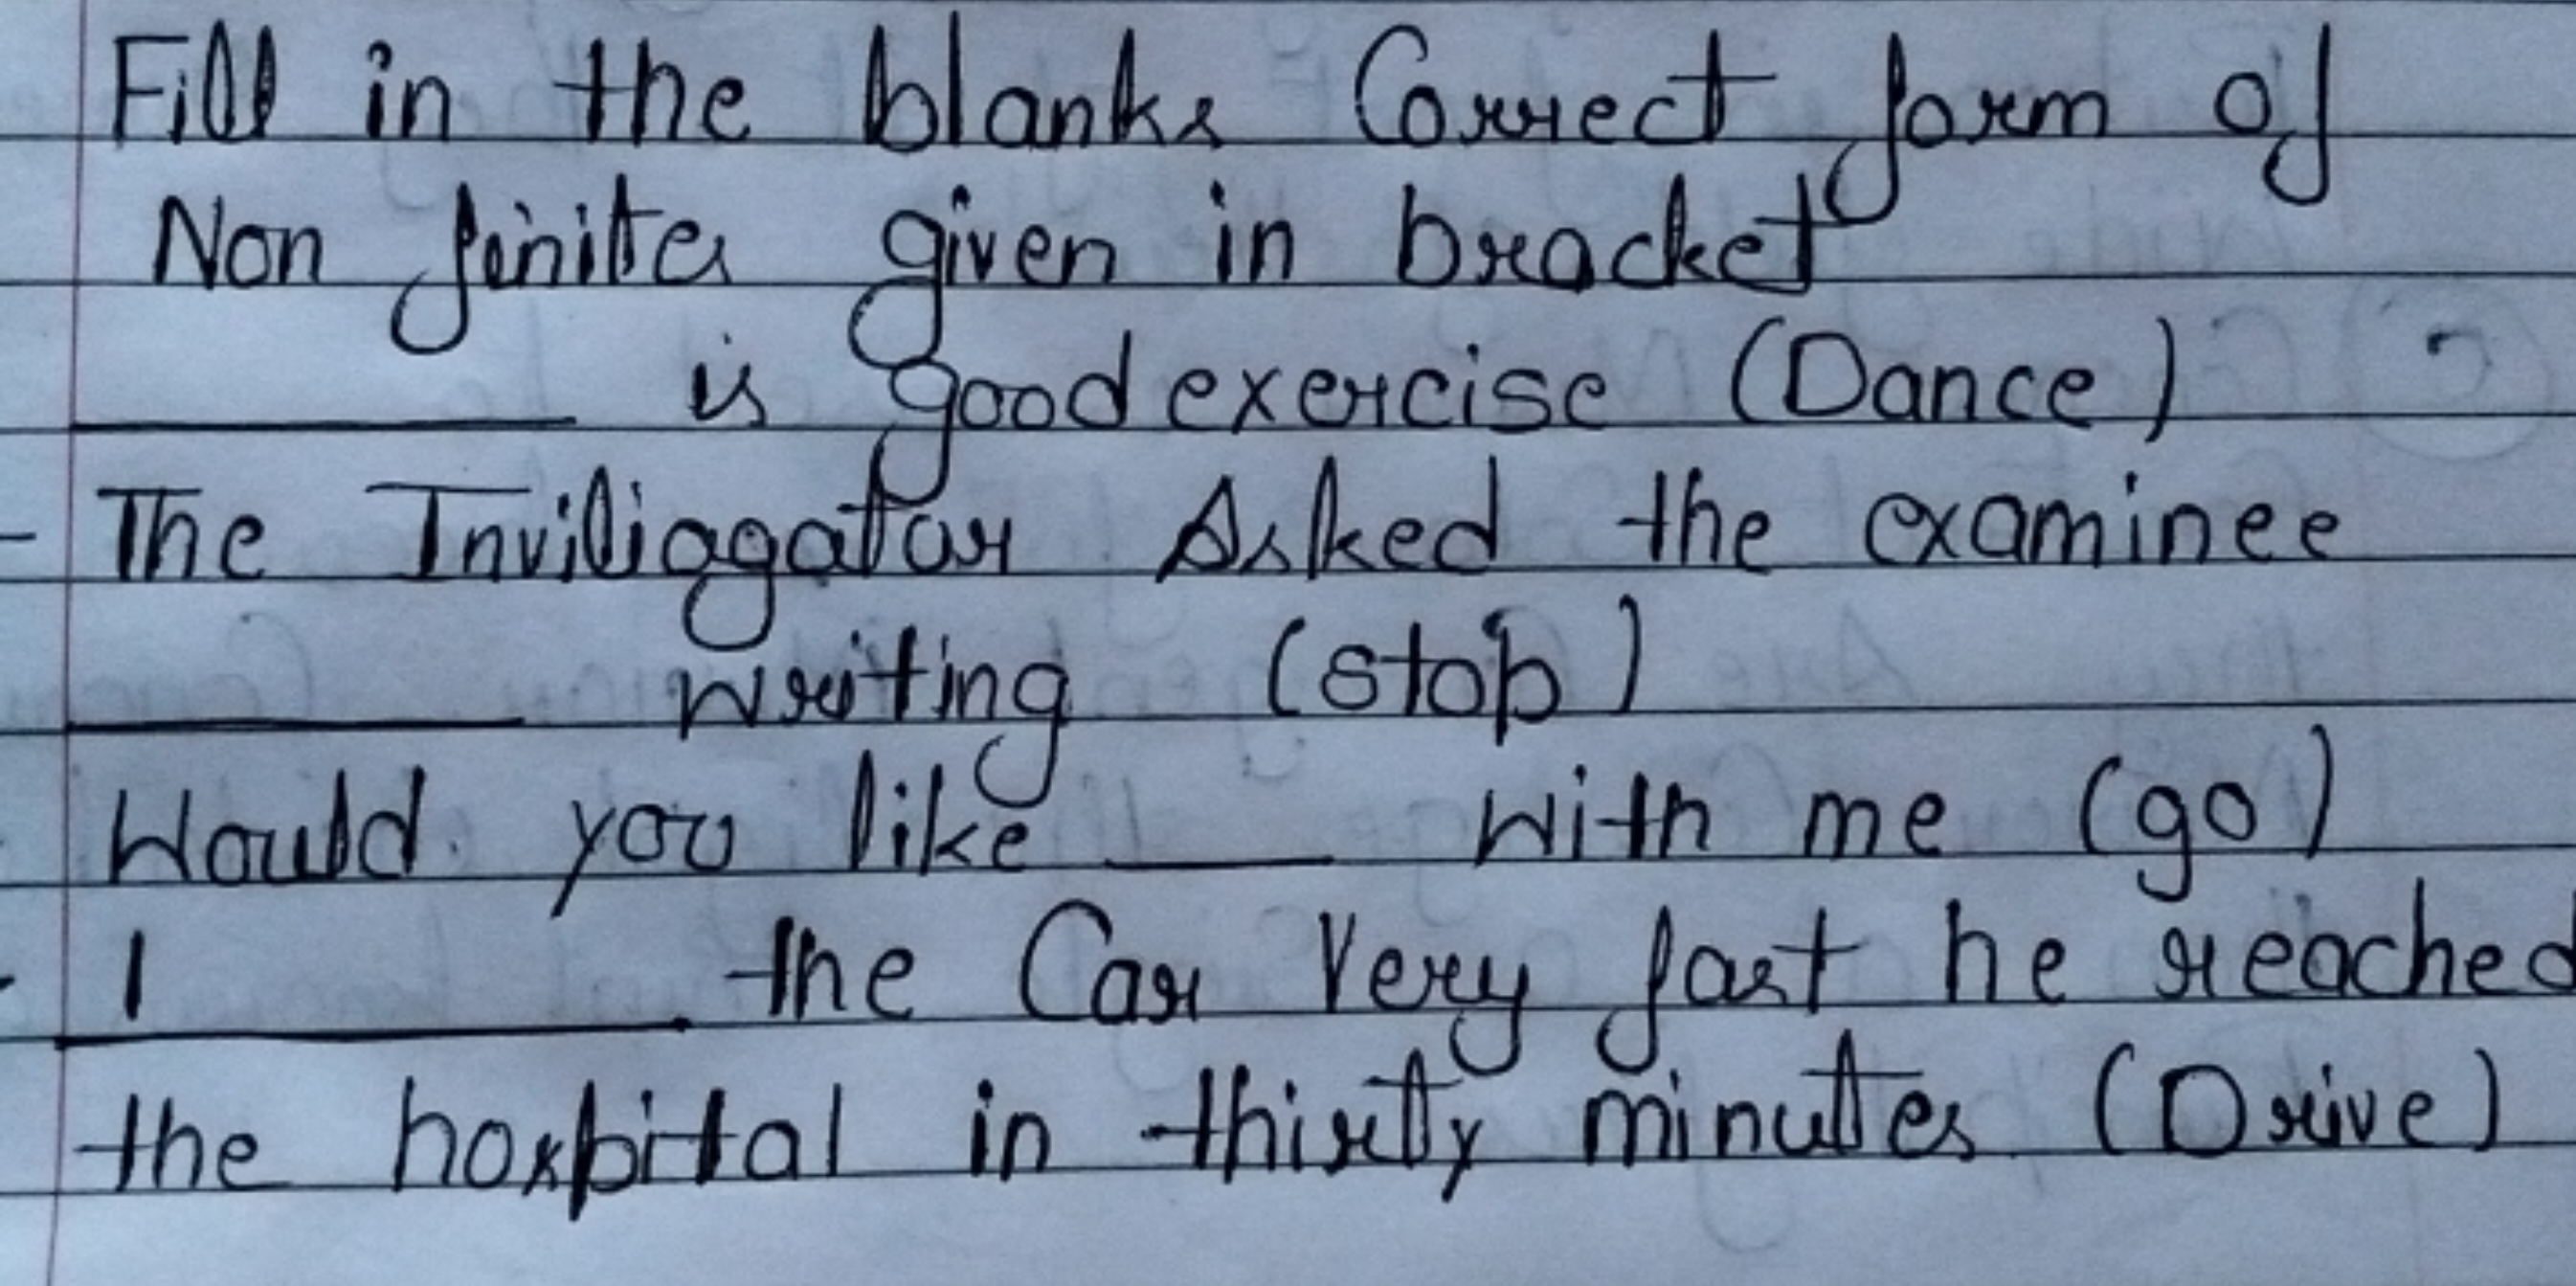 Fill in the blanks Correct form of
Non finites given in bracket
________ is good exercise (Dance)
- The Inviliagator Asked the examinee
________ writing (stop)
Would you like ____ with me (go)
- 1 ________ the Car Very fast he reached
the hospital in thirty minutes (Drive)